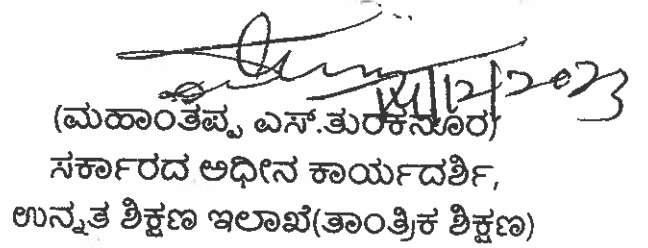 14/12/2023
(ಮಹಾಂತಪ್ಪ ಎಸ್.ತುರಕನೂರ)
ಸರ್ಕಾರದ ಅಧೀನ ಕಾರ್ಯದರ್ಶಿ,
ಉನ್ನತ ಶಿಕ್ಷಣ ಇಲಾಖೆ(ತಾಂತ್ರಿಕ ಶಿಕ್ಷಣ)